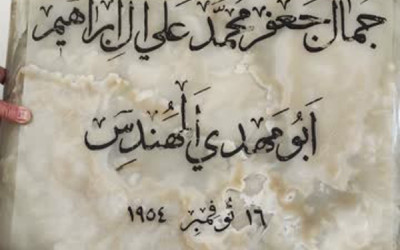 جمال جعفر محمد علي آل إبراهيم
أبو مهدي المهندس
١٦ نوفمبر ١٩٥٤